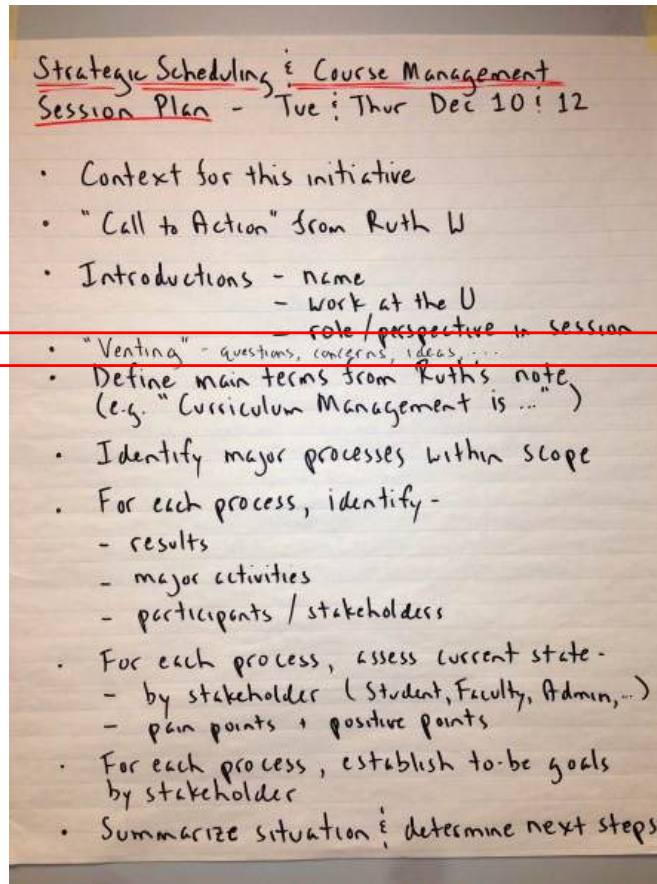 Strategic Scheduling & Course Management
Session Plan - Tue & Thur Dec 10 & 12
· Context for this initiative
· "Call to Action" from Ruth W
· Introductions - name
- work at the U
- role/perspective in session
· "Venting" - questions, concerns, ideas, ...
· Define main terms from Ruth's note
(e.g. "Curriculum Management is ..." )
· Identify major processes within scope
· For each process, identify -
- results
- major activities
- participants / stakeholders
· For each process, assess current state -
- by stakeholder (Student, Faculty, Admin, ...)
- pain points + positive points
· For each process, establish to-be goals
by stakeholder
· Summarize situation & determine next steps